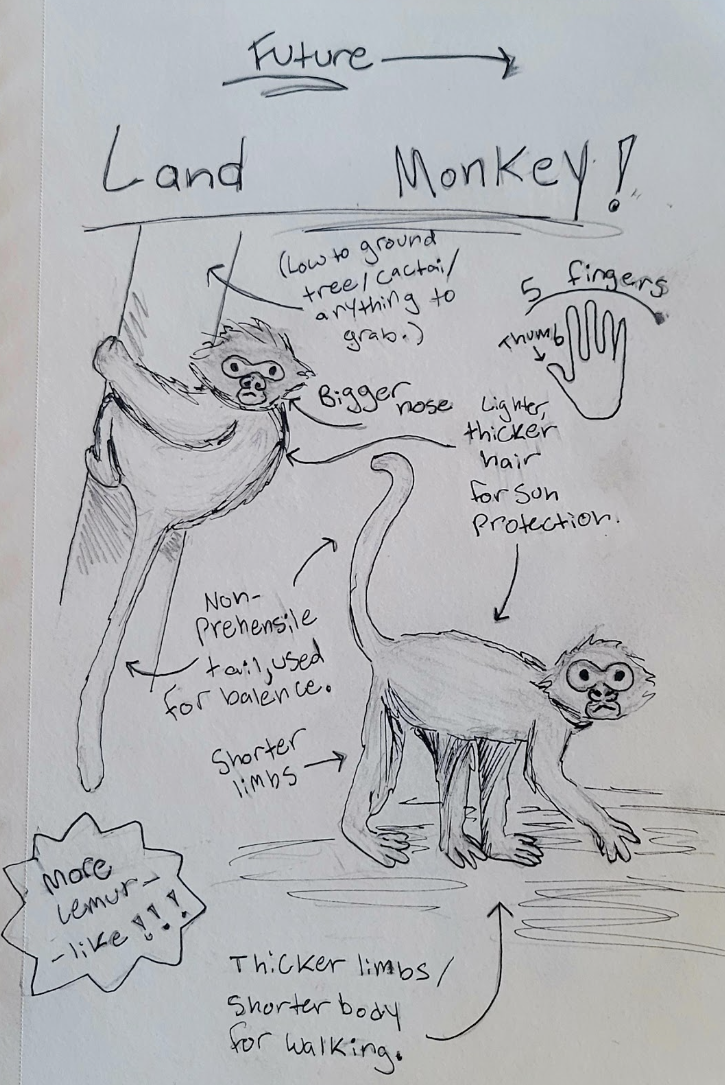 Future
Land Monkey!
(Low to ground
tree/cactai/
anything to
grab.)
5 fingers
Thumb
Bigger nose
Lighter,
thicker
hair
for sun
protection.
Non-
Prehensile
tail, used
for balence.
Shorter
limbs
More
Lemur-
-like!!!
Thicker limbs/
Shorter body
for walking.